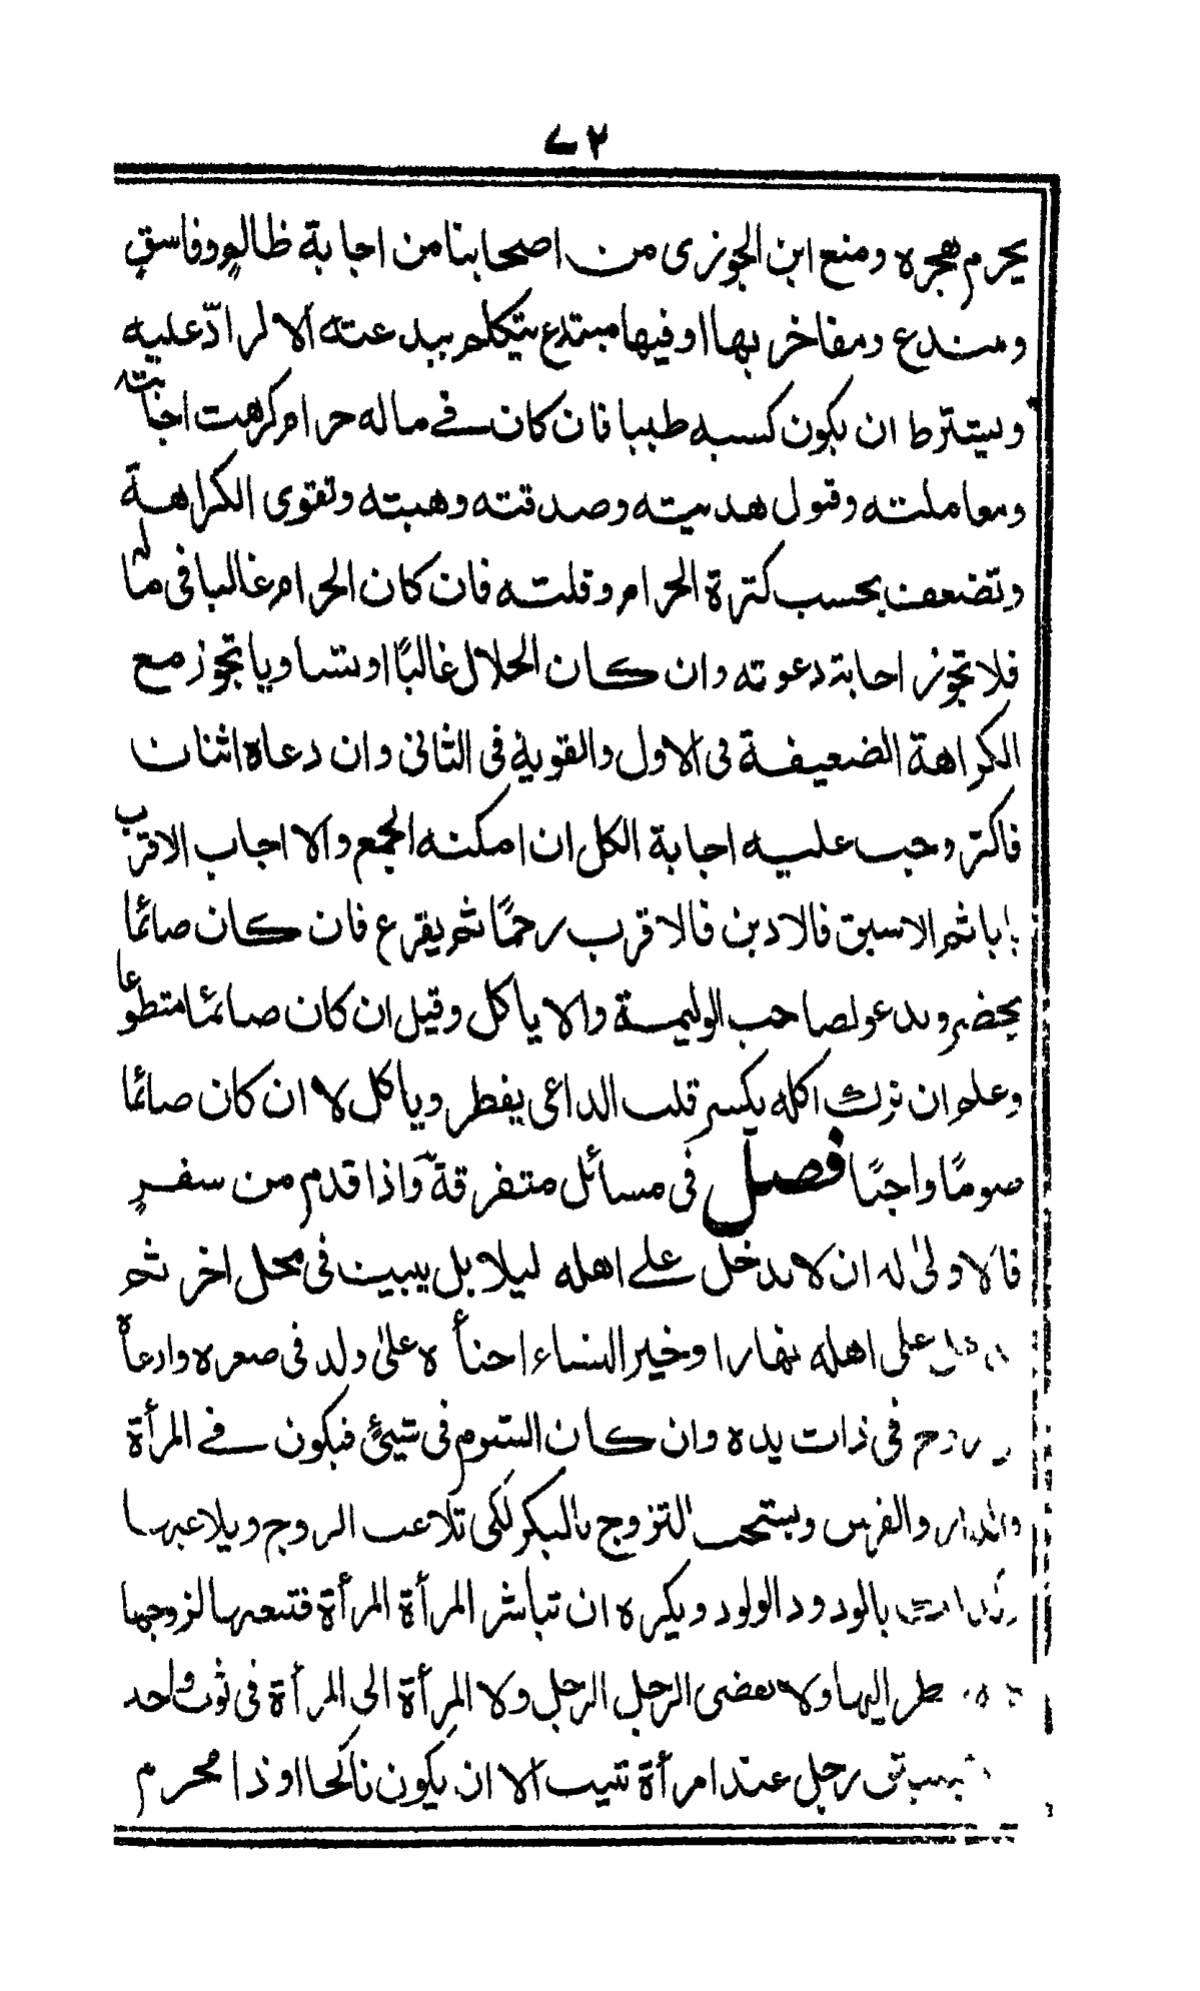 ٧٢
يحرم هجره ومنع ابن الجوزى من اصحابنا من اجابة ظالمٍ وفاسقٍ
ومبتدع ومفاخر بها او فيها مبتدع يتكلم ببدعته الا لرادّ عليه
ويشترط ان يكون كسبه طيبا فان كان فے ماله حرام كرهت اجابته
ومعاملته وقبول هديته وصدقته وهبته وتقوى الكراهة
وتضعف بحسب كثرة الحرام وقلته فان كان الحرام غالبا فى ماله
فلا تجوز اجابة دعوته وان كان الحلال غالبًا او تساويا تجوز مع
الكراهة الضعيفة فى الاول والقوية فى الثانى وان دعاه اثنان
فاكثر وجب عليه اجابة الكل ان امكنه الجمع والا اجاب الاقرب
بابا ثم الاسبق فالادين فالاقرب رحمًا ثم يقرع فان كان صائمًا
يحضر ويدعو لصاحب الوليمة والا ياكل وقيل ان كان صائمًا متطوعا
وعلم ان ترك اكله يكسر قلب الداعى يفطر وياكل لا ان كان صائمًا
صومًا واجبًا فصل فى مسائل متفرقة واذا قدم من سفرٍ
فالاولىٰ له ان لا يدخل علے اهله ليلا بل يبيت فى محل اخر ثم
على اهله نهارا وخير النساء احنأه علىٰ ولد فى صغره وارعاه
فى ذات يده وان كان الشوم فى شيئٍ فيكون فے المرأة
والدار والفرس ويستحب التزوج بالبكر لكى تلاعب الزوج ويلاعبها
بالودود الولود ويكره ان تباشر المرأة المرأة فتنعتها لزوجها
اليها ولا يفضى الرجل الرجل ولا المرأة الى المرأة فى ثوب واحد
رجل عند امرأة ثيب الا ان يكون ناكحا او ذا محرم